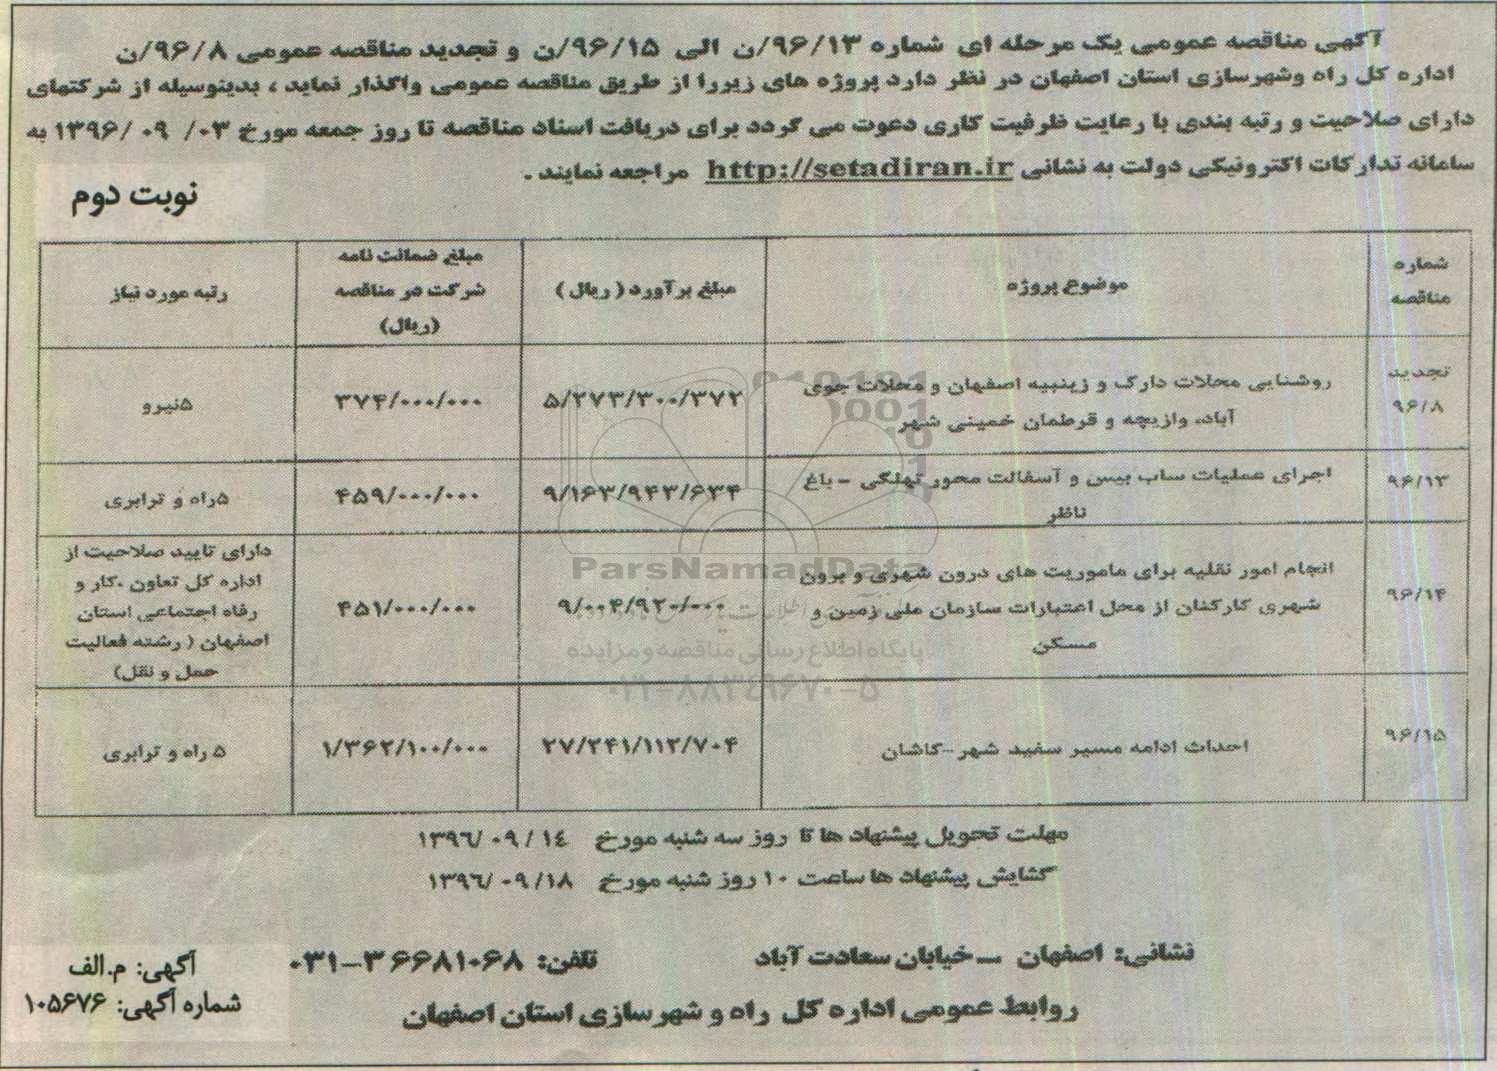 آگهی مناقصه عمومی یک مرحله ای شماره ۹۶/۱۳/ن الی ۹۶/۱۵/ن و تجدید مناقصه عمومی ۹۶/۸/ن
اداره کل راه وشهرسازی استان اصفهان در نظر دارد پروژه های زیررا از طریق مناقصه عمومی واگذار نماید ، بدینوسیله از شرکتهای
دارای صلاحیت و رتبه بندی با رعایت ظرفیت کاری دعوت می گردد برای دریافت اسناد مناقصه تا روز جمعه مورخ ۰۳/ ۰۹ /۱۳۹۶ به
سامانه تدارکات اکترونیکی دولت به نشانی http://setadiran.ir مراجعه نمایند .
نوبت دوم
شماره مناقصه
موضوع پروژه
مبلغ برآورد ( ریال )
مبلغ ضمانت نامه شرکت در مناقصه (ریال)
رتبه مورد نیاز
تجدید ۹۶/۸
روشنایی محلات دارک و زینبیه اصفهان و محلات جوی
آباد، وازیچه و قرطمان خمینی شهر
۵/۲۷۳/۳۰۰/۳۷۲
۳۷۴/۰۰۰/۰۰۰
۵نیرو
۹۶/۱۳
اجرای عملیات ساب بیس و آسفالت محور تهلکی - باغ
ناظر
۹/۱۶۳/۹۴۳/۶۳۴
۴۵۹/۰۰۰/۰۰۰
۵راه و ترابری
۹۶/۱۴
انجام امور نقلیه برای ماموریت های درون شهری و برون
شهری کارکنان از محل اعتبارات سازمان ملی زمین و
مسکن
۹/۰۰۴/۹۲۰/۰۰۰
۴۵۱/۰۰۰/۰۰۰
دارای تایید صلاحیت از
اداره کل تعاون ،کار و
رفاه اجتماعی استان
اصفهان ( رشته فعالیت
حمل و نقل)
۹۶/۱۵
احداث ادامه مسیر سفید شهر -کاشان
۲۷/۲۴۱/۱۱۲/۷۰۴
۱/۳۶۲/۱۰۰/۰۰۰
۵ راه و ترابری
ParsNamadData
پایگاه اطلاع رسانی مناقصه و مزایده
۰۲۱-۸۸۳۴۹۶۷۰-۵
مهلت تحویل پیشنهاد ها تا روز سه شنبه مورخ ۱۴ /۰۹ /۱۳۹۶
گشایش پیشنهاد ها ساعت ۱۰ روز شنبه مورخ ۱۸/ ۰۹ /۱۳۹۶
نشانی: اصفهان – خیابان سعادت آباد
تلفن: ۳۶۶۸۱۰۶۸-۰۳۱
روابط عمومی اداره کل راه و شهرسازی استان اصفهان
آگهی: م.الف
شماره آگهی: ۱۰۵۶۷۶